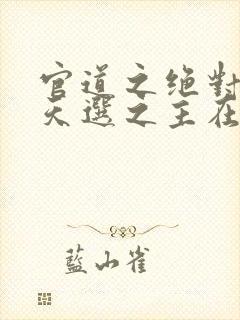 官道之绝對
天選之主在
藍山雀